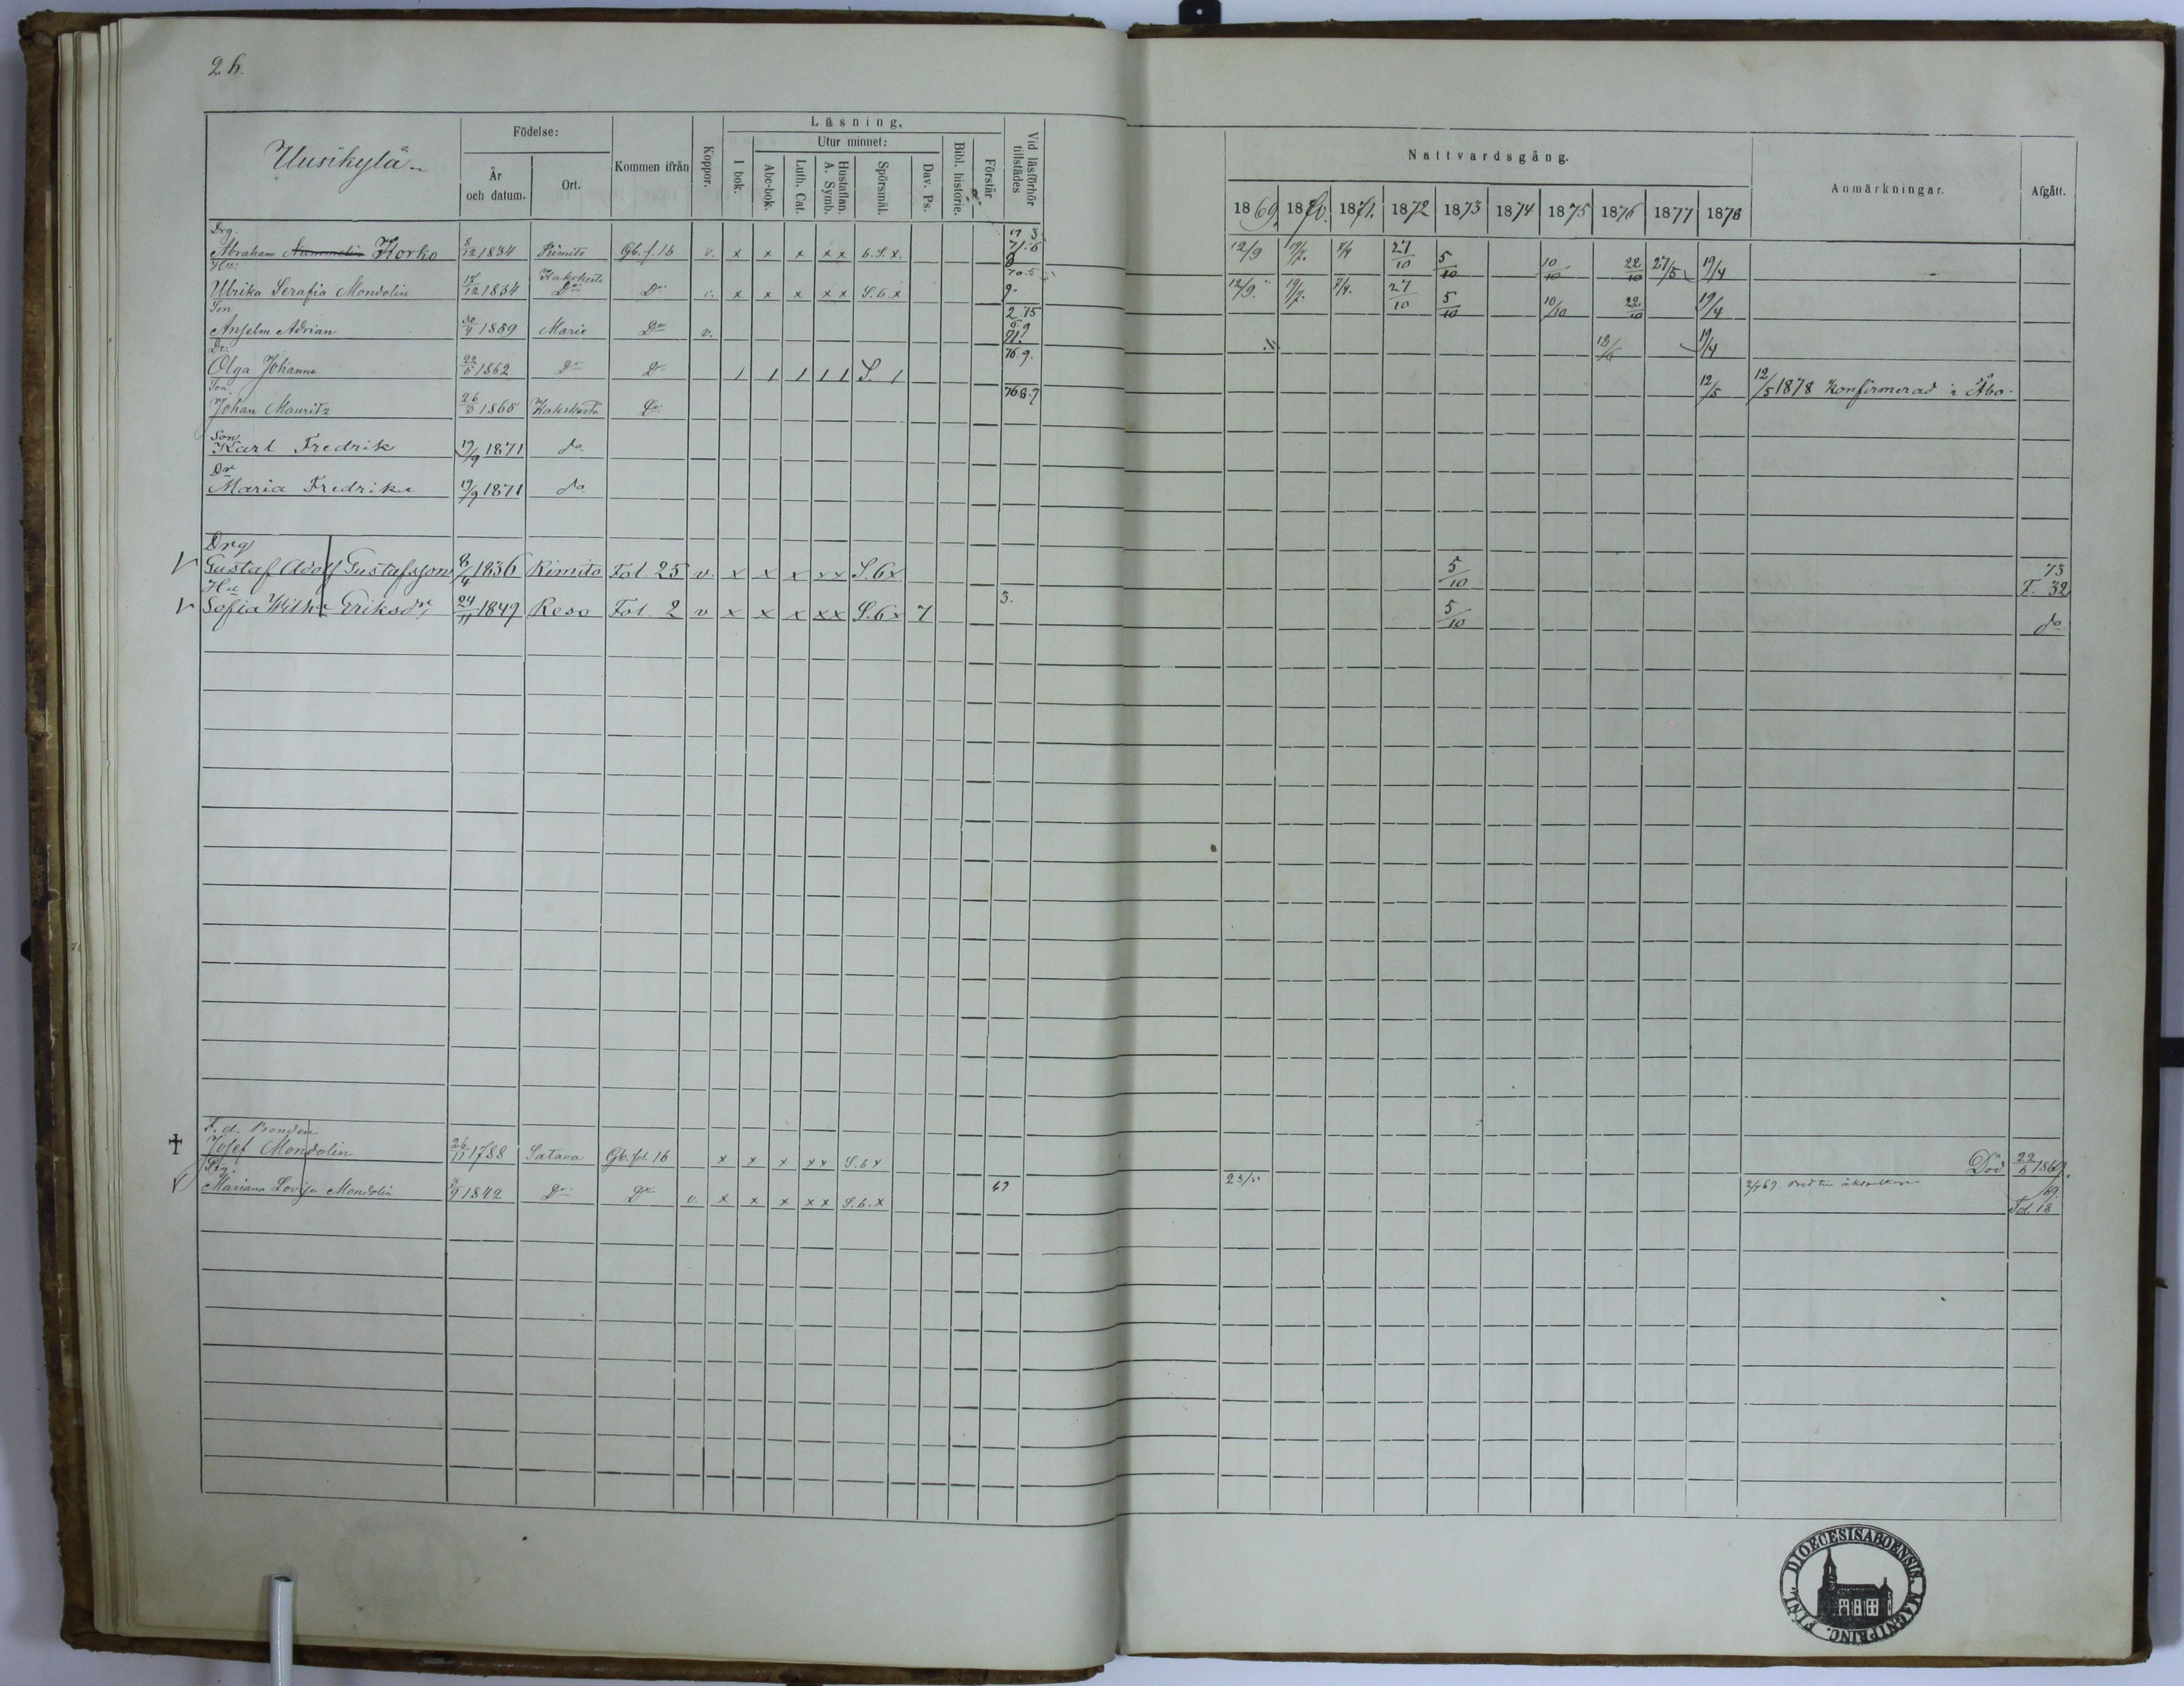 26.
Uusikylä
Födelse:
År och datum.
Ort.
Kommen ifrån
Koppor.
Läsning,
I bok.
Utur minnet:
Abc-bok.
Luth. Cat.
Hustaflan. A. Symb.
Spörsmål.
Dav. Ps.
Bibl. historie.
Förstår
Vid läsförhör tillstädes
Nattvardsgång.
1869. 1870. 1871. 1872 1873 1874 1875 1876 1877 1878
Anmärkningar.
Afgått.
Drg.
Abraham Korko 8/12 1834 Rimito Gb. f. 16 v. x x x x x 6. S. x. 12/9 27/10 5/10 10/10 22/10 27/5 19/4
Hu:
Ulrika Serafia Mondolin 17/12 1834 Kakskerta Do Do v. x x x x x S. 6. x 9. 12/9. 7/4. 27/10 5/10 10/10 22/10 19/4
Son
Anselm Adrian 30/4 1859 Marie Do v. 19/4
Dr:
Olga Johanna 22/5 1862 Do Do 1 1 1 1 1 S. 1 76 9. 12/5 12/5 1878 Konfirmerad i Åbo.
Son
Johan Mauritz 26/3 1865 Kakskerta Do 76 8. 7
Son
Karl Fredrik 19/9 1871 do
Dr
Maria Fredrika 19/9 1871 do
Drg
V Gustaf Adolf Gustafsson 8/4 1836 Rimito Fol. 25 v. x x x x x S. 6 x 5/10 73 F. 32
Hu
V Sofia Wilh:a Eriksdr 24/11 1849 Reso Fol. 2 v x x x x x S. 6 x 7 3. 5/10 do
F. d. Bonden
† Josef Mondolin 26/11 1788 Satava Gb. fol. 16 x x x x x S. 6 x Död 22/5 1869.
Mariana Lovisa Mondolin 1842 Do Do v. x x x x x S. 6. x 23/5 69. Fol. 18
DIOECESIS ABOENSIS. MAGNI PRINC. FINL.